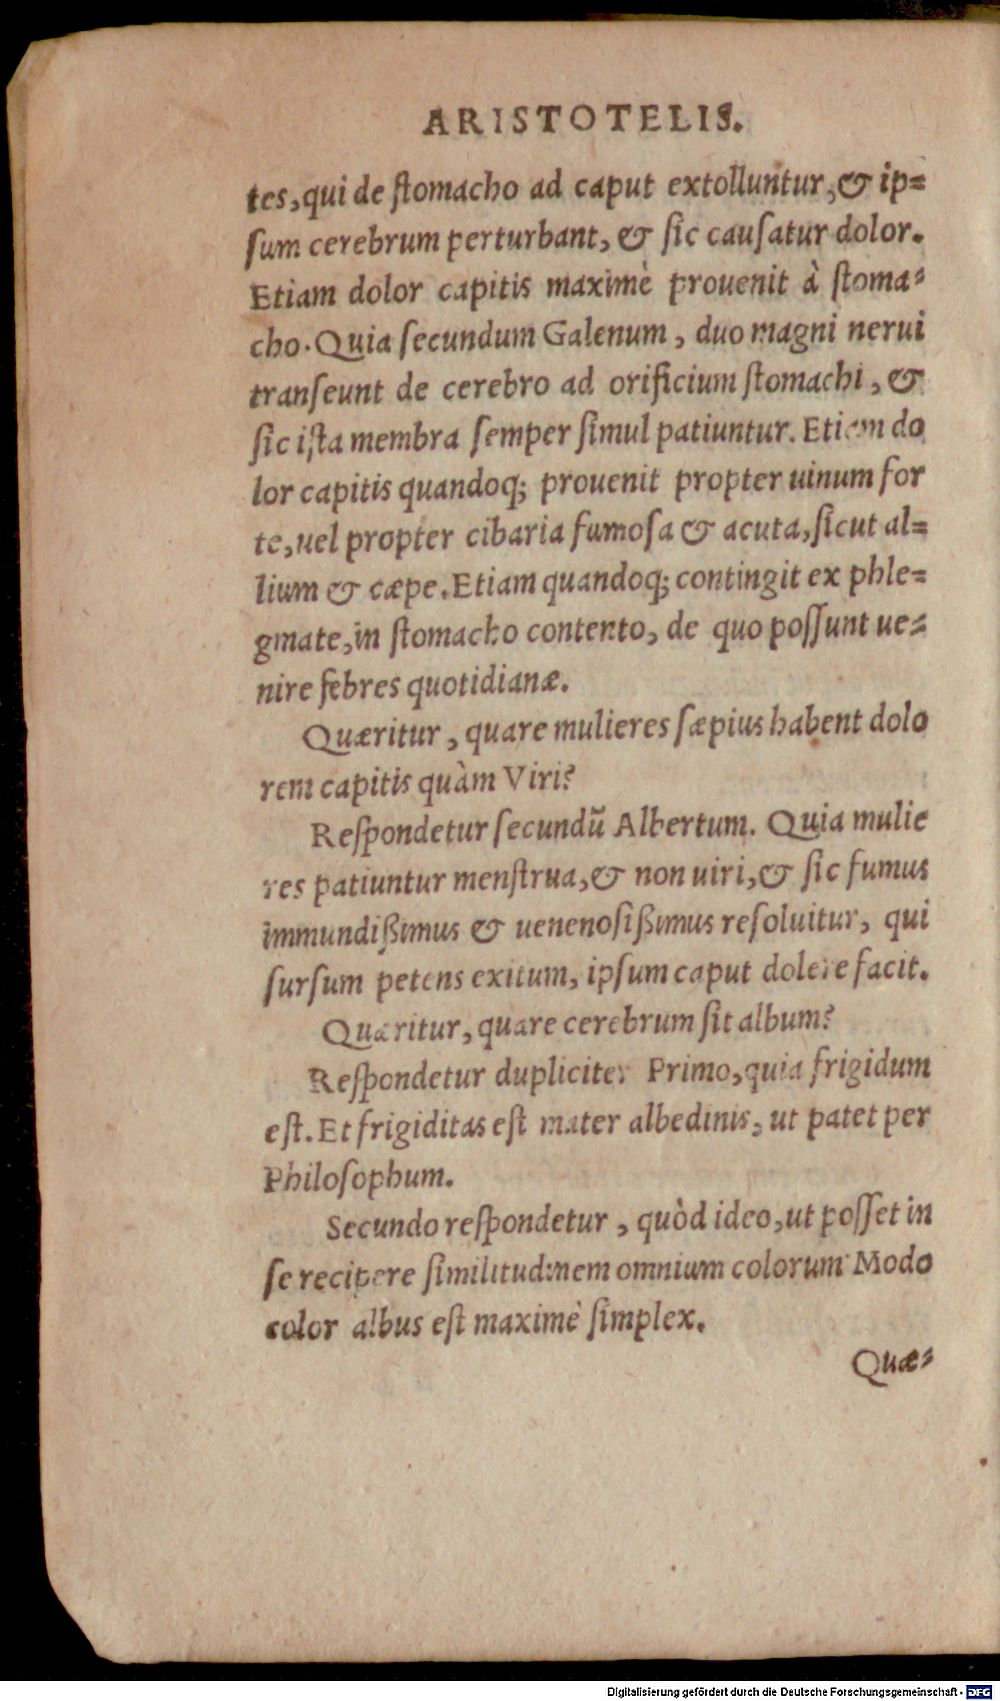 ARISTOTELIS.
tes, qui de stomacho ad caput extolluntur, & ip=
sum cerebrum perturbant, & sic causatur dolor.
Etiam dolor capitis maximè prouenit à stoma=
cho. Quia secundum Galenum, duo magni nerui
transeunt de cerebro ad orificium stomachi, &
sic ista membra semper simul patiuntur. Etiam do
lor capitis quandoq; prouenit propter uinum for
te, uel propter cibaria fumosa & acuta, sicut al=
lium & cæpe. Etiam quandoq; contingit ex phle=
gmate, in stomacho contento, de quo possunt ue=
nire febres quotidianæ.
Quæritur, quare mulieres sæpius habent dolo
rem capitis quàm Viri?
Respondetur secundũ Albertum. Quia mulie
res patiuntur menstrua, & non uiri, & sic fumus
immundißimus & uenenosißimus resoluitur, qui
sursum petens exitum, ipsum caput dolere facit.
Quæritur, quare cerebrum sit album?
Respondetur dupliciter Primo, quia frigidum
est. Et frigiditas est mater albedinis, ut patet per
Philosophum.
Secundo respondetur, quòd ideo, ut posset in
se recipere similitudinem omnium colorum Modo
color albus est maximè simplex.
Quæ=
Digitalisierung gefördert durch die Deutsche Forschungsgemeinschaft - DFG